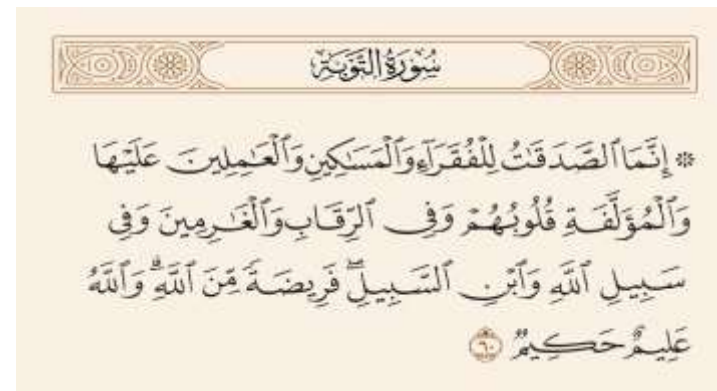 سُورَةُ التَّوۡبَةِ
۞ إِنَّمَا ٱلصَّدَقَٰتُ لِلۡفُقَرَآءِ وَٱلۡمَسَٰكِينِ وَٱلۡعَٰمِلِينَ عَلَيۡهَا
وَٱلۡمُؤَلَّفَةِ قُلُوبُهُمۡ وَفِي ٱلرِّقَابِ وَٱلۡغَٰرِمِينَ وَفِي
سَبِيلِ ٱللَّهِ وَٱبۡنِ ٱلسَّبِيلِۖ فَرِيضَةٗ مِّنَ ٱللَّهِۗ وَٱللَّهُ
عَلِيمٌ حَكِيمٞ ٦٠